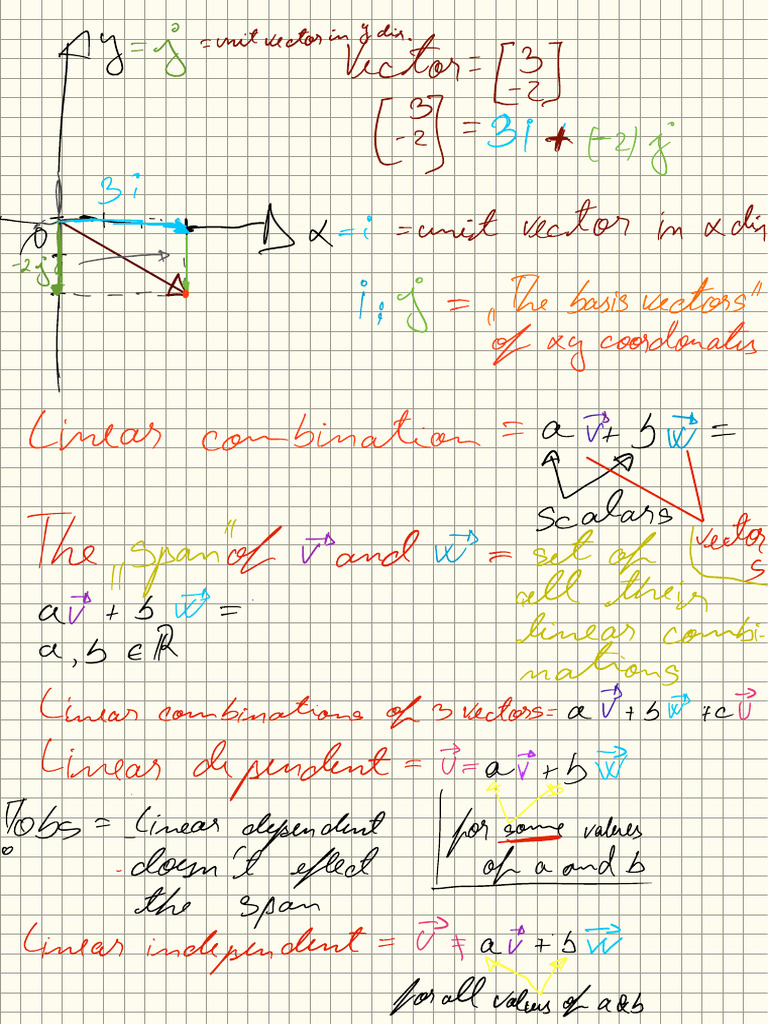 y = j = unit vector in y dir.
Vector = [3 -2]
[3 -2] = 3i + (-2)j
3i
0
x = i = unit vector in x dir
-2j
i ; j = „The basis vectors"
of xy coordonates
Linear combination = a v⃗ + b w⃗ =
scalars
vectors
The „span" of v⃗ and w⃗ = set of
all their
linear combi-
nations
a v⃗ + b w⃗ =
a, b ∈ ℝ
Linear combinations of 3 vectors = a v⃗ + b w⃗ + c u⃗
Linear dependent = u⃗ = a v⃗ + b w⃗
for some values
of a and b
obs = Linear dependent
doesn't effect
the span
Linear independent = u⃗ ≠ a v⃗ + b w⃗
for all values of a & b